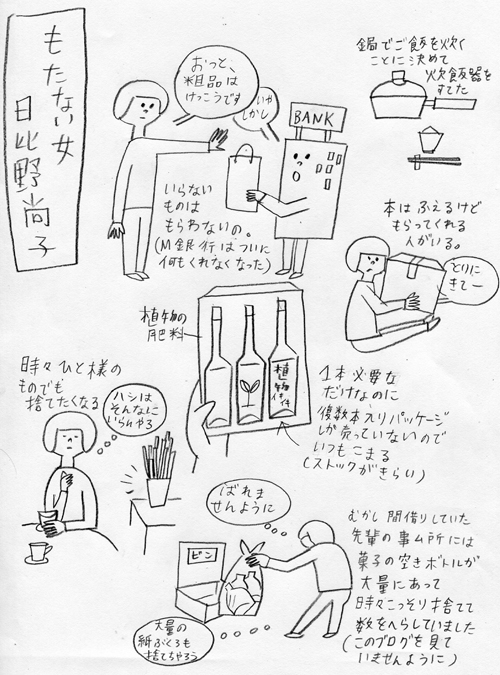 もたない女
日比野尚子
おっと、
粗品は
けっこうです
いや
しかし
BANK
いらない
ものは
もらわないの。
(M銀行はついに
何もくれなくなった)
鍋でご飯を炊く
ことに決めて
炊飯器を
すてた
本はふえるけど
もらってくれる
人がいる。
とりに
きてー
植物の
肥料
植物
イキイキ
1本必要な
だけなのに
複数本入りパッケージ
しか売っていないので
いつもこまる
(ストックがきらい)
時々ひと様の
ものでも
捨てたくなる
ハシは
そんなに
いらんやろ
ばれま
せんように
ビン
大量の
紙ぶくろも
捨てちゃろう
むかし間借りしていた
先輩の事ム所には
菓子の空きボトルが
大量にあって
時々こっそり捨てて
数をへらしていました
(このブログを見て
いませんように)